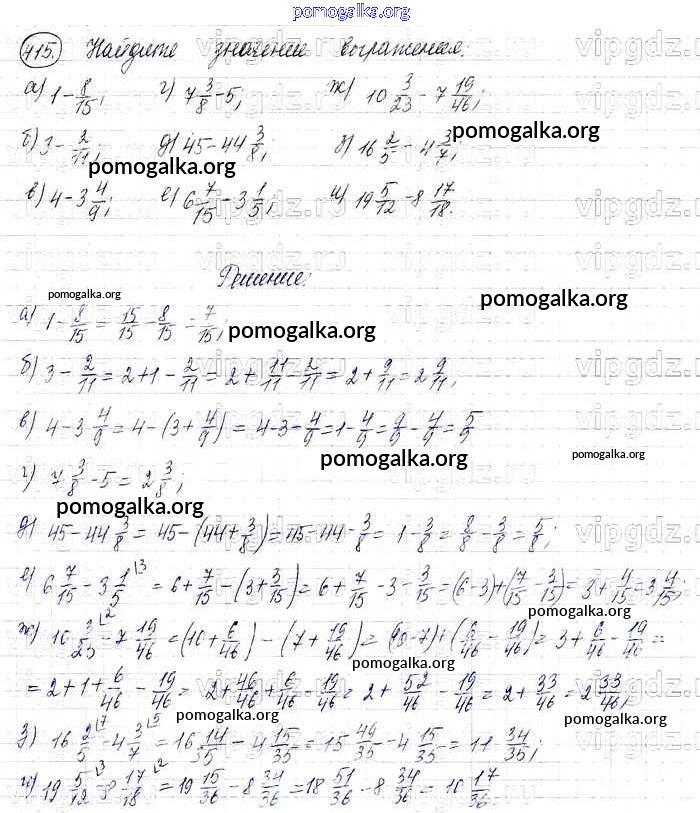 pomogalka.org
415. Найдите значение выражения:
а) 1 - 8/15; г) 7 3/8 - 5; ж) 10 3/23 - 7 19/46;
б) 3 - 2/11; д) 45 - 44 3/8; з) 16 2/5 - 4 3/7;
pomogalka.org
pomogalka.org
в) 4 - 3 4/9; е) 6 7/15 - 3 1/5; и) 19 5/12 - 8 17/18.
Решение:
pomogalka.org
pomogalka.org
а) 1 - 8/15 = 15/15 - 8/15 = 7/15;
pomogalka.org
б) 3 - 2/11 = 2 + 1 - 2/11 = 2 + 11/11 - 2/11 = 2 + 9/11 = 2 9/11;
в) 4 - 3 4/9 = 4 - (3 + 4/9) = 4 - 3 - 4/9 = 1 - 4/9 = 9/9 - 4/9 = 5/9
pomogalka.org
pomogalka.org
г) 7 3/8 - 5 = 2 3/8;
pomogalka.org
д) 45 - 44 3/8 = 45 - (44 + 3/8) = 45 - 44 - 3/8 = 1 - 3/8 = 8/8 - 3/8 = 5/8;
е) 6 7/15 - 3 1/5 ⌊3 = 6 + 7/15 - (3 + 3/15) = 6 + 7/15 - 3 - 3/15 = (6 - 3) + (7/15 - 3/15) = 3 + 4/15 = 3 4/15;
pomogalka.org
ж) 10 3/23 ⌊2 - 7 19/46 = (10 + 6/46) - (7 + 19/46) = (10 - 7) + (6/46 - 19/46) = 3 + 6/46 - 19/46 =
pomogalka.org
= 2 + 1 + 6/46 - 19/46 = 2 + 46/46 + 6/46 - 19/46 = 2 + 52/46 - 19/46 = 2 + 33/46 = 2 33/46;
pomogalka.org
pomogalka.org
з) 16 2/5 ⌊7 - 4 3/7 ⌊5 = 16 14/35 - 4 15/35 = 15 49/35 - 4 15/35 = 11 34/35;
и) 19 5/12 ⌊3 - 8 17/18 ⌊2 = 19 15/36 - 8 34/36 = 18 51/36 - 8 34/36 = 10 17/36.
pomogalka.org
vipgdz.ru